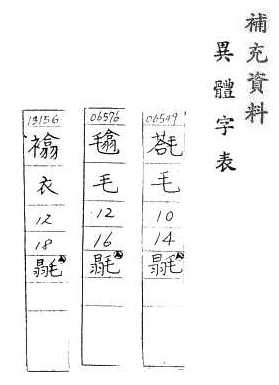 補充資料
異體字表
06549
毛
10
14
毾
06576
毛
12
16
毾
13156
衣
12
18
毾